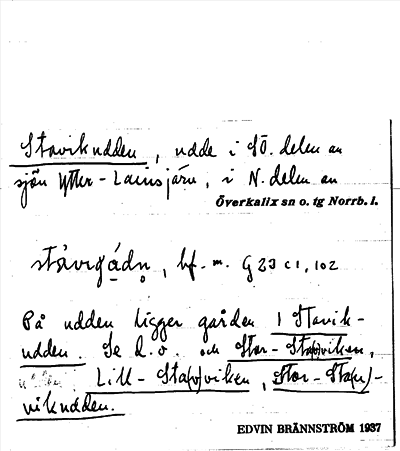 Stavikudden, udde i SÖ. delen av
sjön Ytter-Lainsjärv, i N. delen av
Överkalix sn o. tg Norrb. l.
bf. m. G 23 c 1, 102
På udden ligger gården 1 Stavik-
udden. Se d. o. och Stor-Sta(v)viken,
Lill-Sta(v)viken, Stor-Sta(v)-
vikudden.
EDVIN BRÄNNSTRÖM 1937